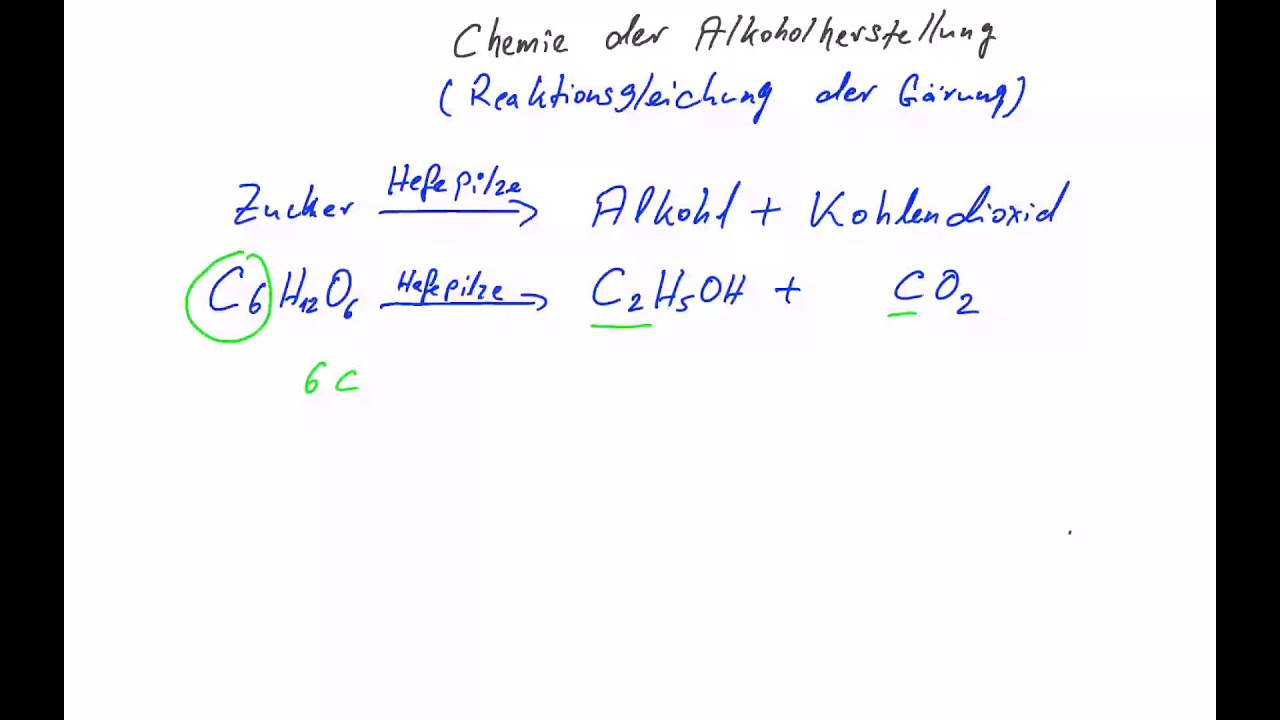 Chemie der Alkoholherstellung
(Reaktionsgleichung der Gärung)
Zucker Hefepilze → Alkohl + Kohlendioxid
C6H12O6 Hefepilze → C2H5OH + CO2
6 C